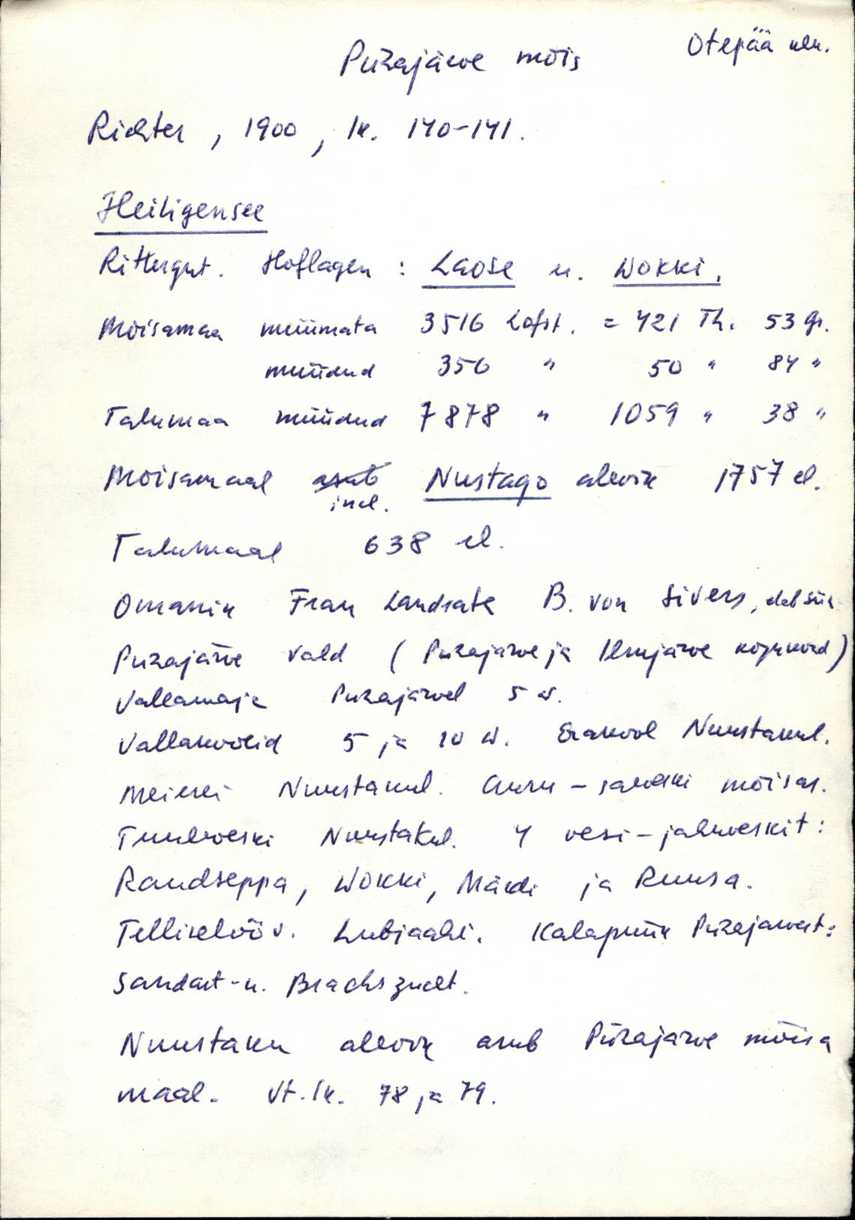 Pühajärve mõis Otepää khn.
Richter, 1900, lk. 140-141.
Heiligensee
Rittergut. Hoflagen: Laose u. Wokki.
Mõisamaa müümata 3516 Lofst. = 421 Th. 53 gr.
müüdud 356 " 50 " 84 "
Talumaa müüdud 7878 " 1059 " 38 "
Mõisamaal asub incl. Nustago alevik 1757 el.
Talumaal 638 el.
Omanik Frau Landrath B. von Sivers,
Pühajärve vald (Pühajärve ja Ilmjärve kogukond)
Vallamaja Pühajärvel 5 w.
Vallakoolid 5 ja 10 w. Erakool Nuustakul.
Meierei Nuustakul. Auru-saeveski mõisas.
Tuuleveski Nuustakul. 4 vesi-jahuveskit:
Raudseppa, Wokki, Märdi ja Ruusa.
Telliselööv. Lubjaahi. Kalapüük Pühajärvest:
Sandart- u. Brachszucht.
Nuustaku alevik asub Pühajärve mõisa
maal. Vt. lk. 78 ja 79.